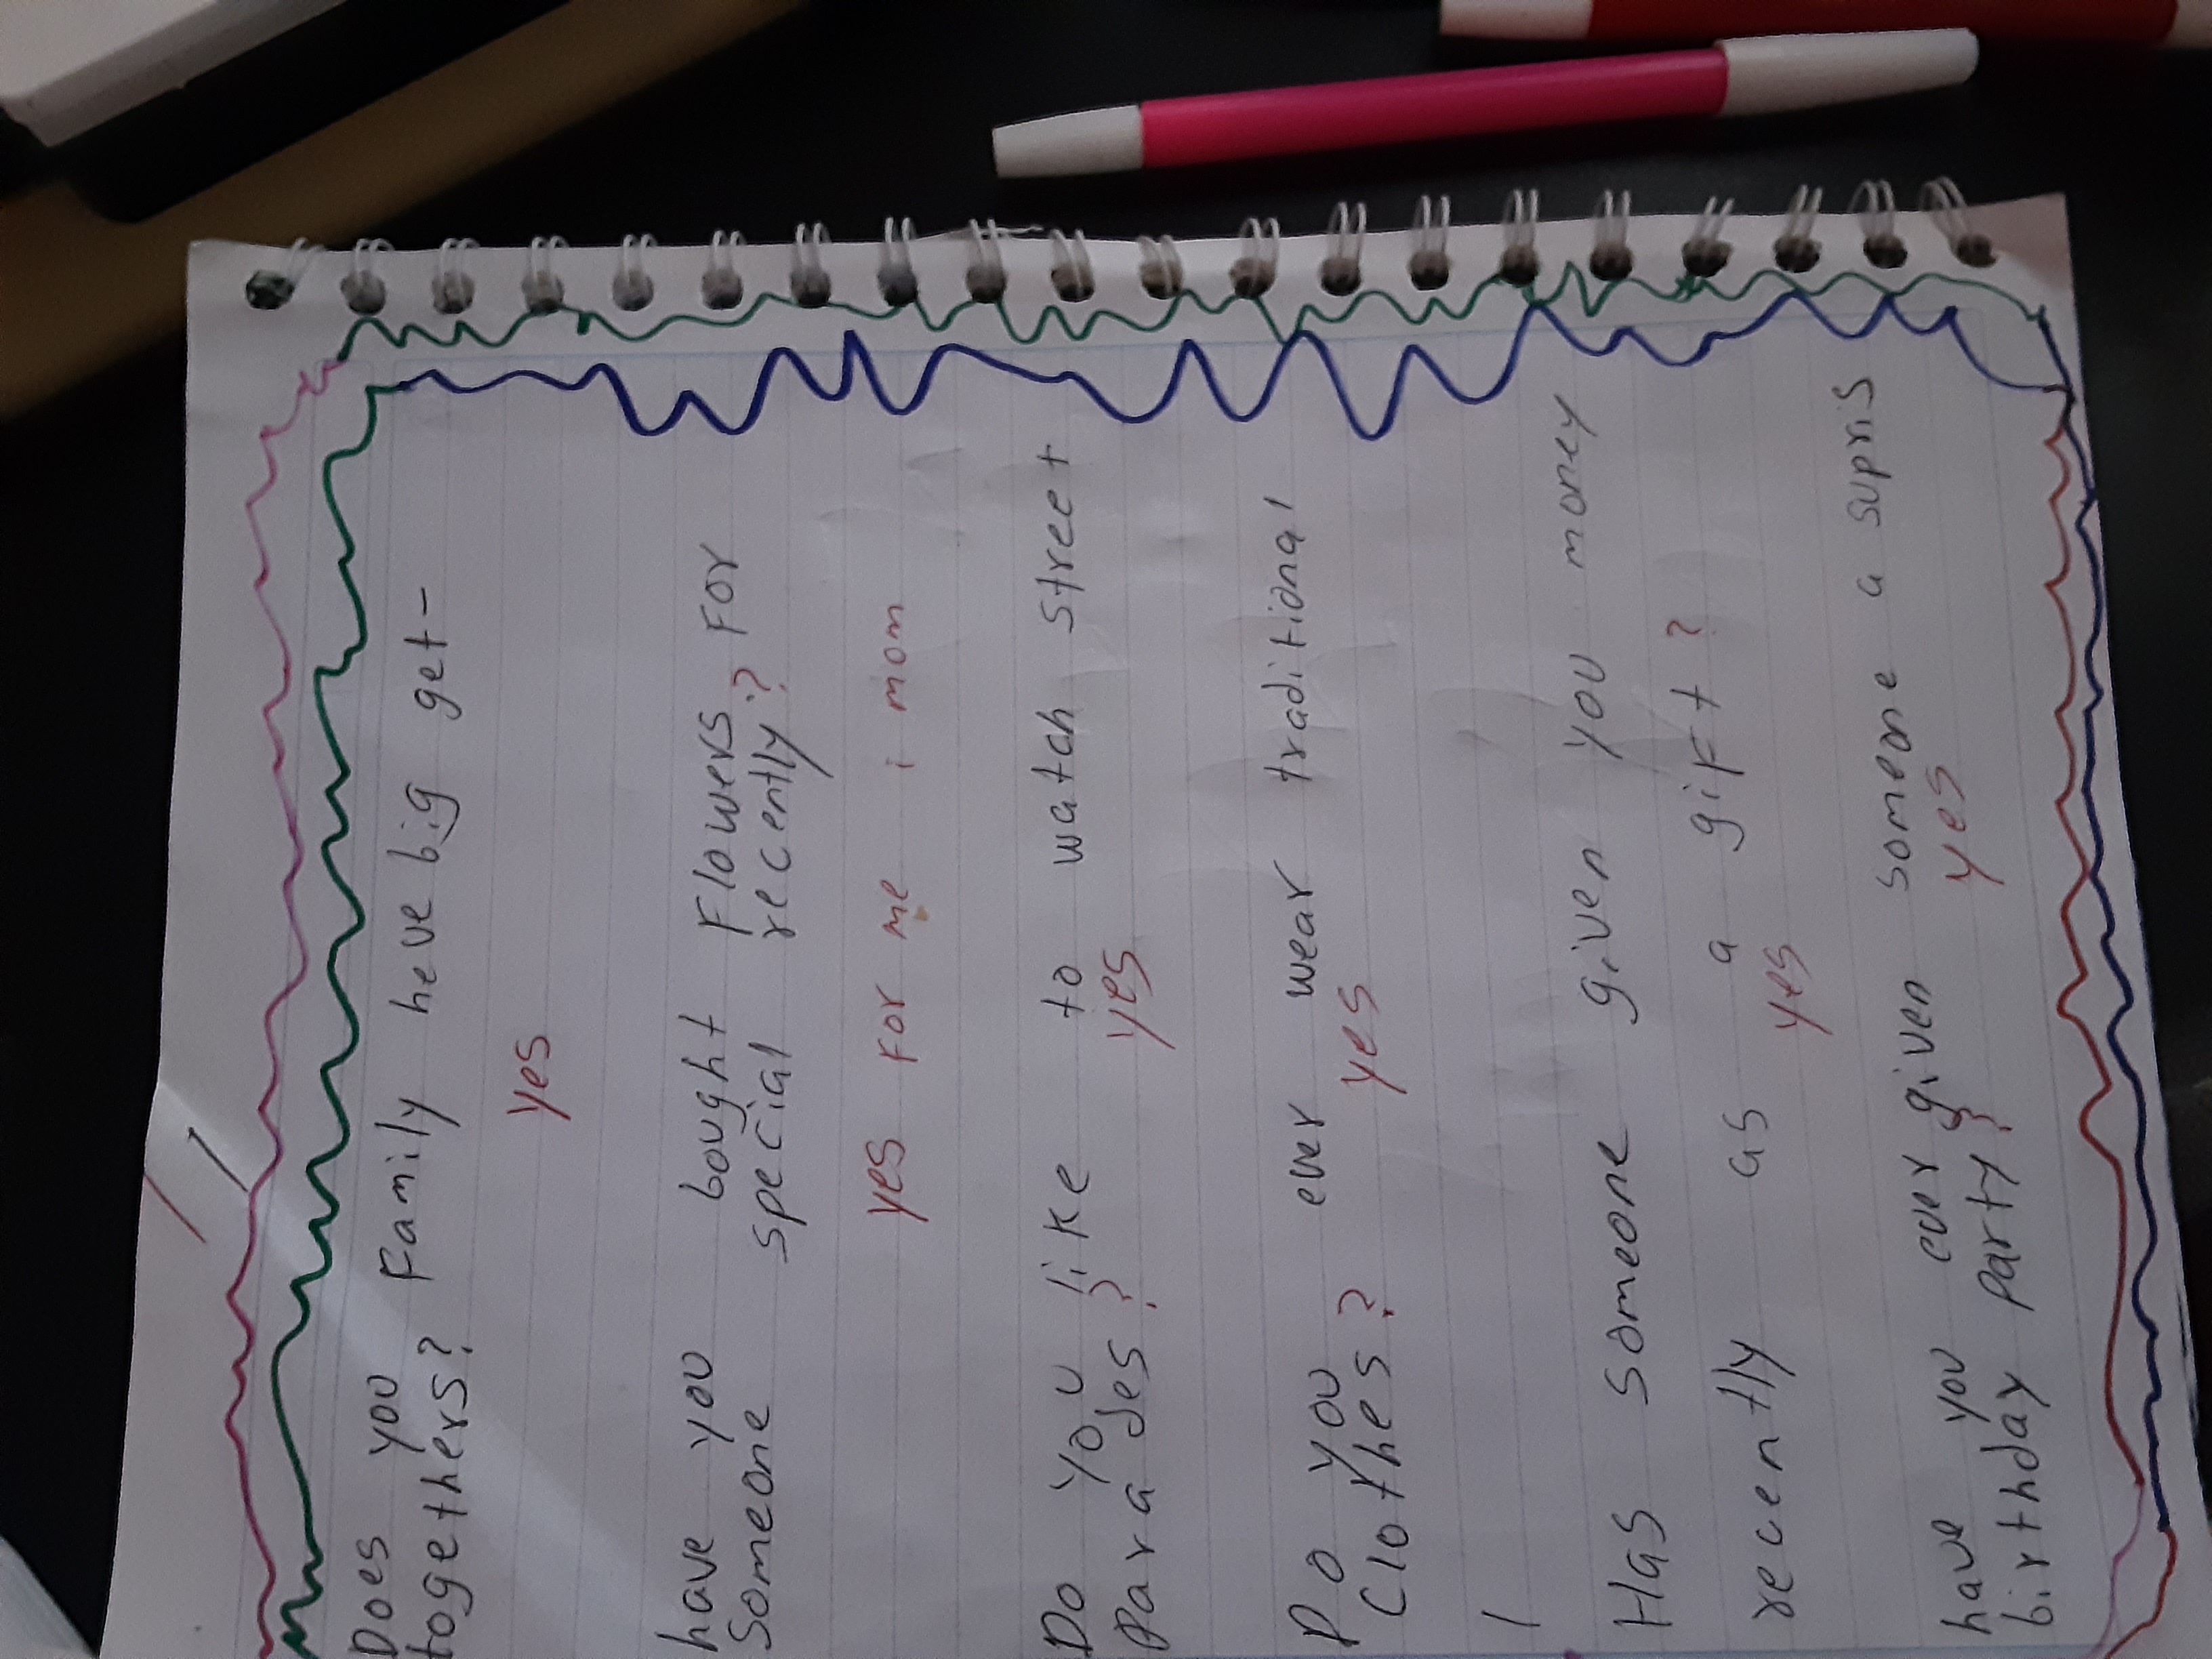 Does you Family heve big get-
togethers?
yes
have you bought Flowers For
someone special recently?
yes For me i mom
Do you like to watah street
Parades?
yes
Do you ever wear traditional
Clothes?
yes
Has someone given you money
recently as a gift?
yes
have you ever given someone a supris
birthday party?
yes